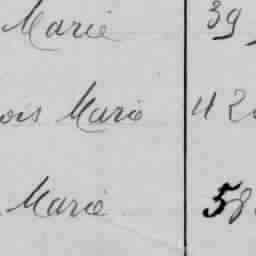 Marie 39
ois Marie 42
Marie 58